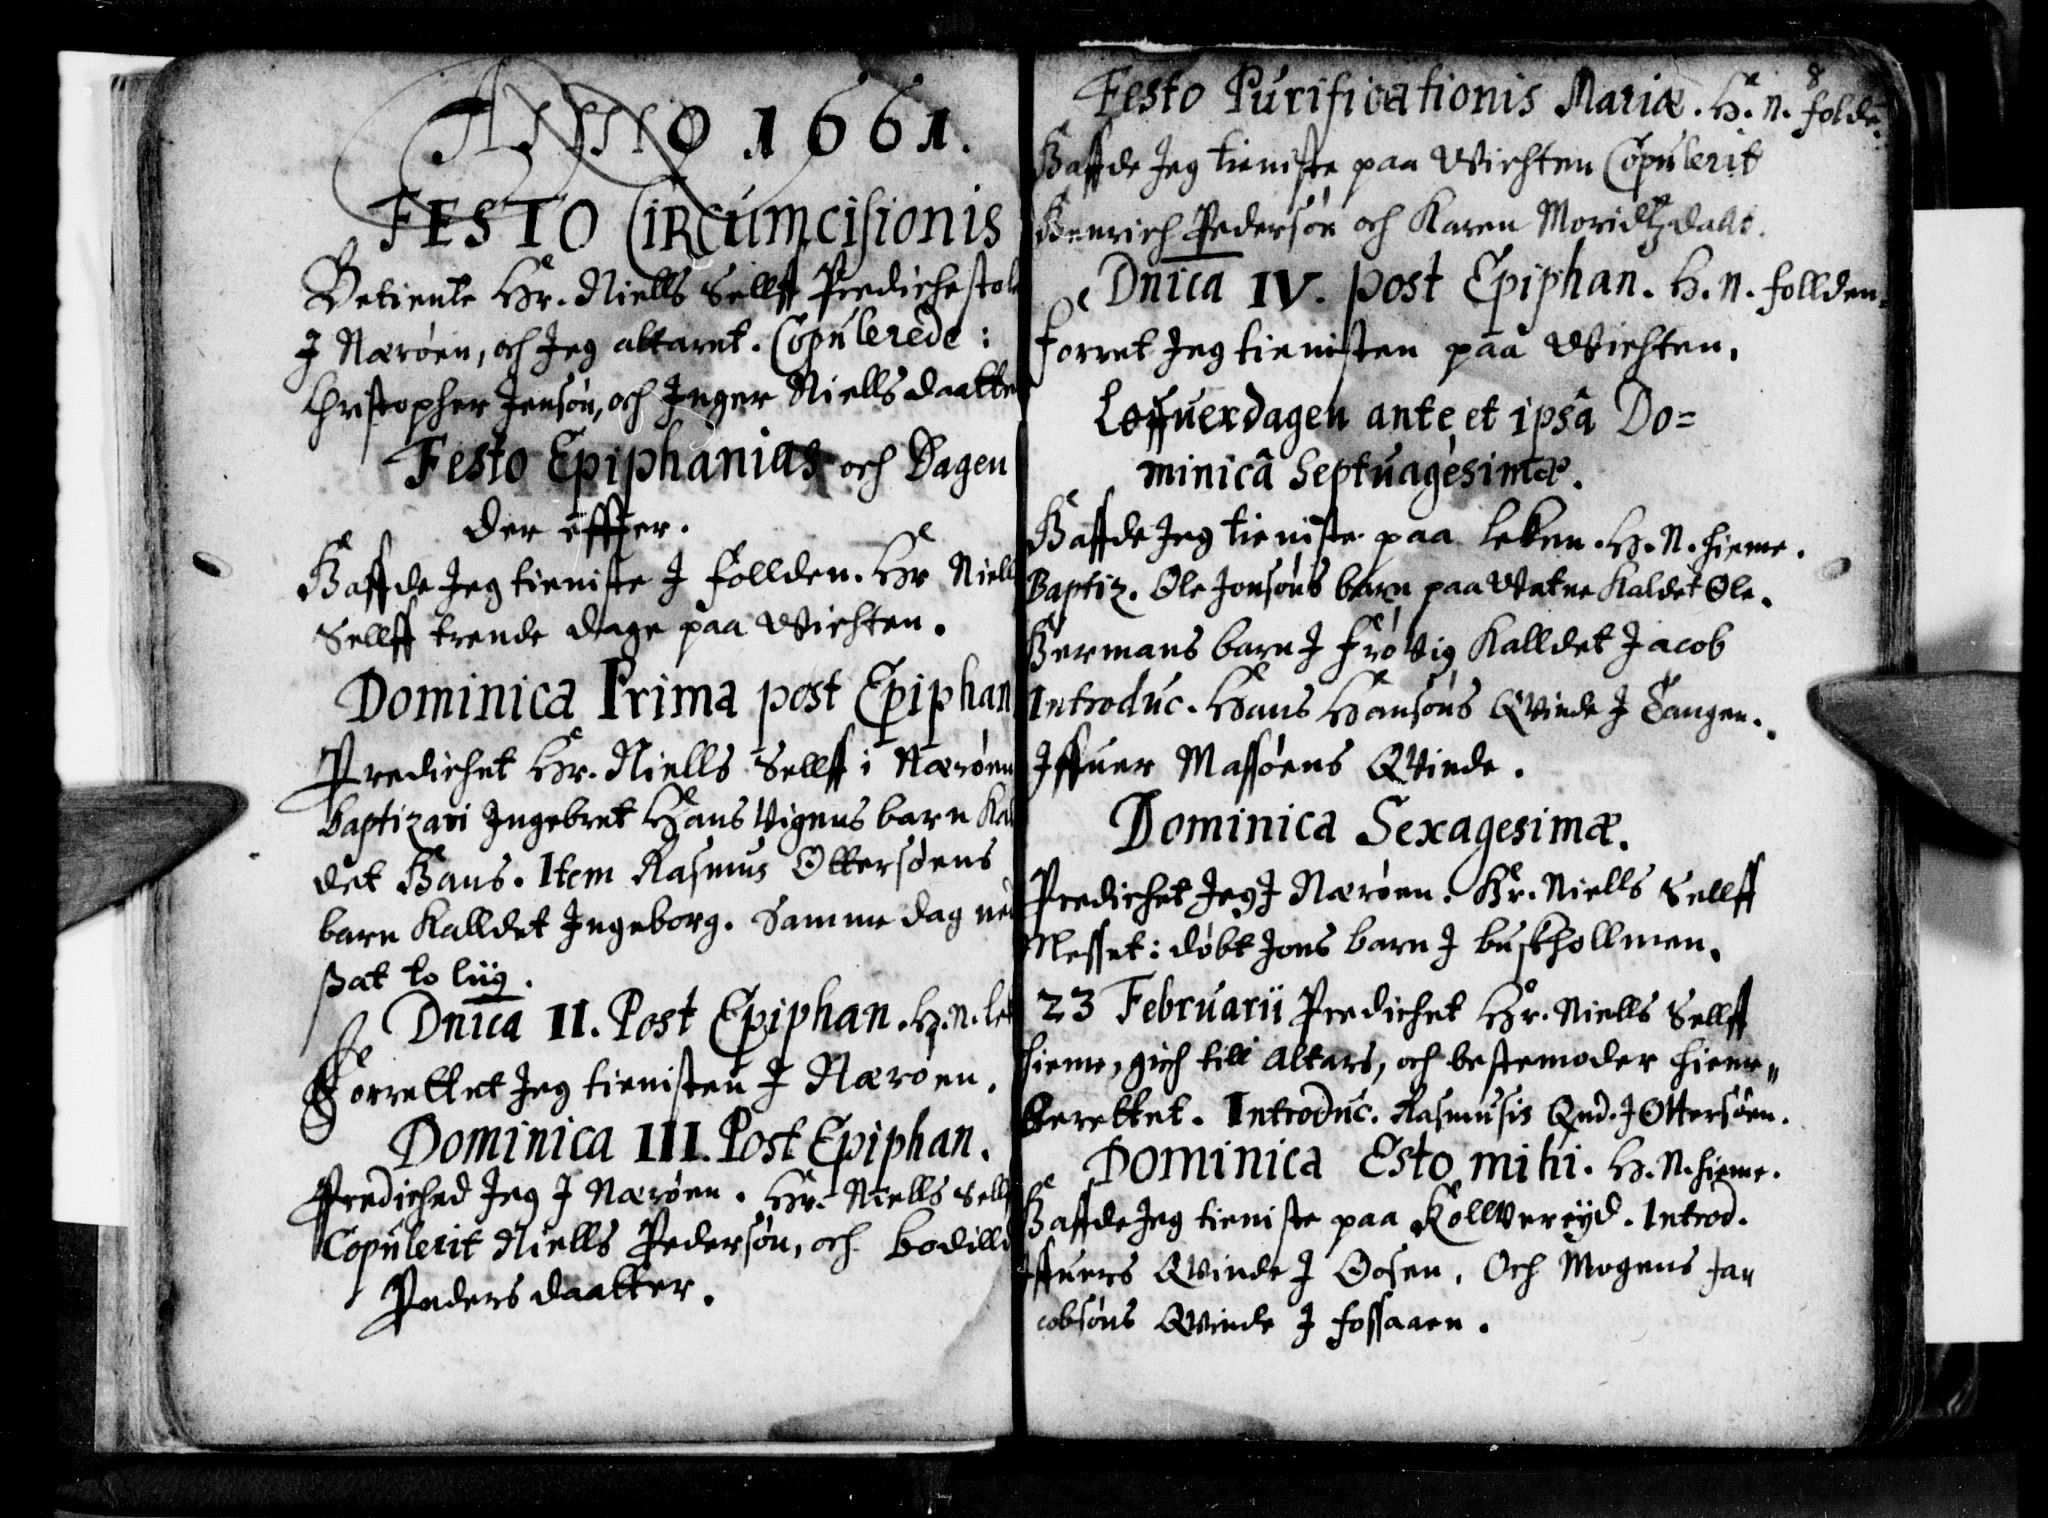 Anno 1661.
FESTO CIRCUMCISIONIS
Betiente Hr. Niells Sellff Predichestol
J Nærøen, och Jeg altaret. Copulerede:
Christopher Jensøn, och Inger Niells daatter
Festo Epiphanias och Dagen
der effter.
Haffde Jeg tieniste J follden. Hr Niells
Sellff trende dage paa Wichten.
Dominica Prima post Epiphan
Predichet Hr. Niells Sellff i Nærøen
Baptizavi Ingebret Hans Vigens barn Kal
det Hans. Item Rasmus Ottersøens
barn Kalldet Ingeborg. Samme dag ned
sat to liig.
Dnica II. Post Epiphan. H. N. lek
Forrettet Jeg tienisten J Nærøen.
Dominica III. Post Epiphan.
Prediched Jeg J Nærøen. Hr. Niells Sellff
Copulerit Niells Pedersøn, och Bodilld
Peders daatter.
8
Festo Purificationis Mariæ. H. N. folde.
Haffde Jeg tieniste paa Wichten Copulerit
Henrich Pedersøn och Karen Moridtz daat.
Dnica IV. post Epiphan. H. N. follden.
Forret Jeg tienisten paa Wichten.
Løffuerdagen ante et ipsâ Do=
minicâ Septuagesimæ.
Haffde Jeg tieniste paa leken. H. N. hieme.
Baptiz. Ole Jonsøns barn paa Vatne Kaldet Ole.
Hermans barn J frøVig Kalldet Jacob
Introduc. Hans Hansøns QVinde J Tangen.
Iffuer Massøens QVinde.
Dominica Sexagesimæ.
Predichet Jeg J Nærøen. Hr. Niells Sellff
Messet: døbt Jons barn J buskhollmen.
23 Februarii Predichet Hr. Niells Sellff
hieme, gich till Altars, och bestemoder hieme
Berettet. Introduc. Rasmusis Qnd. J Ottersøen.
Dominica Esto mihi. H. N. hieme.
Haffde Jeg tieniste paa Kollvereyd. Introd.
Iffuers QVinde J Oosen. Och Mogens Ja=
cobsøns QVinde J fossaaen.